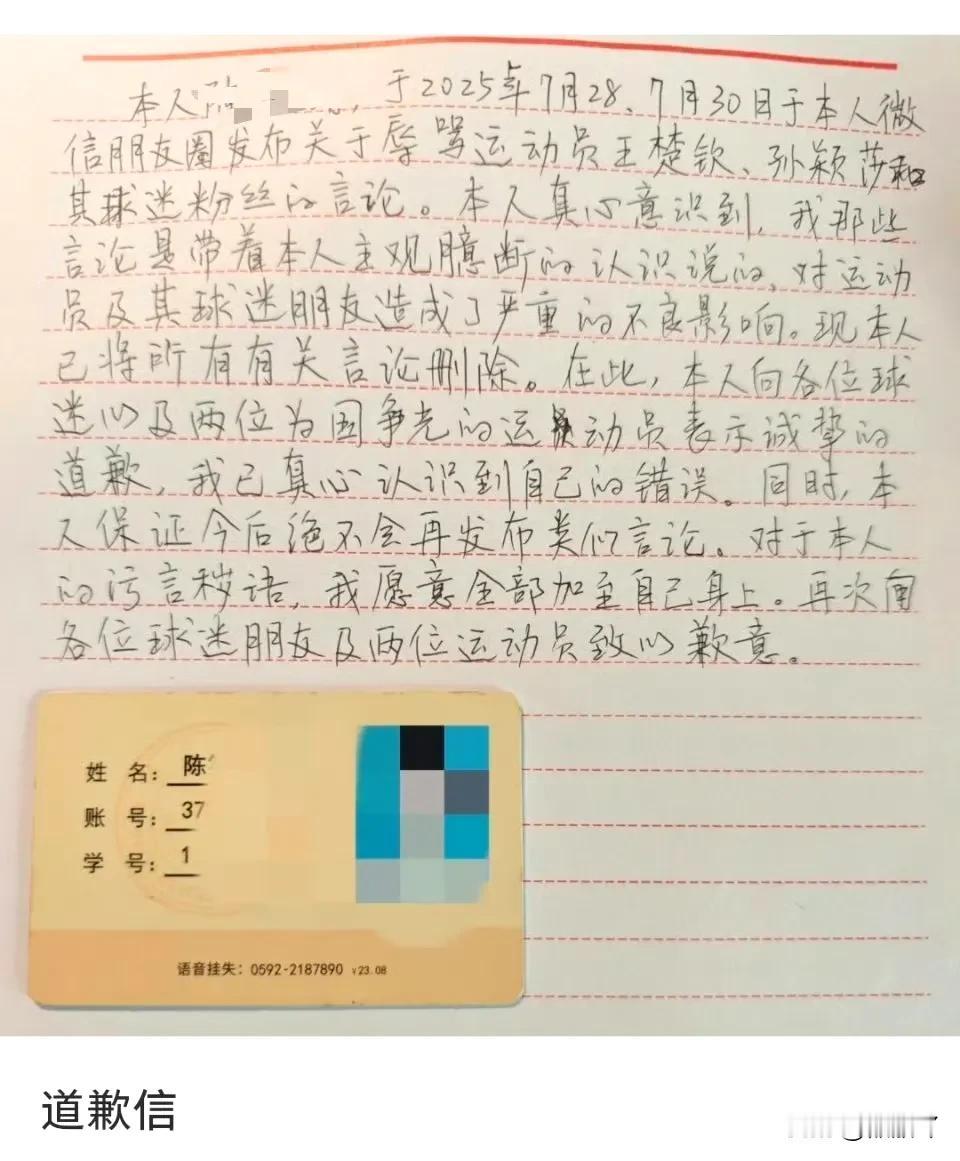 本人陈 ，于2025年7月28、7月30日于本人微
信朋友圈发布关于辱骂运动员王楚钦、孙颖莎和
其球迷粉丝的言论。本人真心意识到，我那些
言论是带着本人主观臆断的认识说的，对运动
员及其球迷朋友造成了严重的不良影响。现本人
已将所有有关言论删除。在此，本人向各位球
迷以及两位为国争光的运动员表示诚挚的
道歉，我已真心认识到自己的错误。同时，本
人保证今后绝不会再发布类似言论。对于本人
的污言秽语，我愿意全部加至自己身上。再次向
各位球迷朋友及两位运动员致以歉意。
姓 名：陈
账 号：37
学 号：1
语音挂失：0592-2187890 V23.08
道歉信